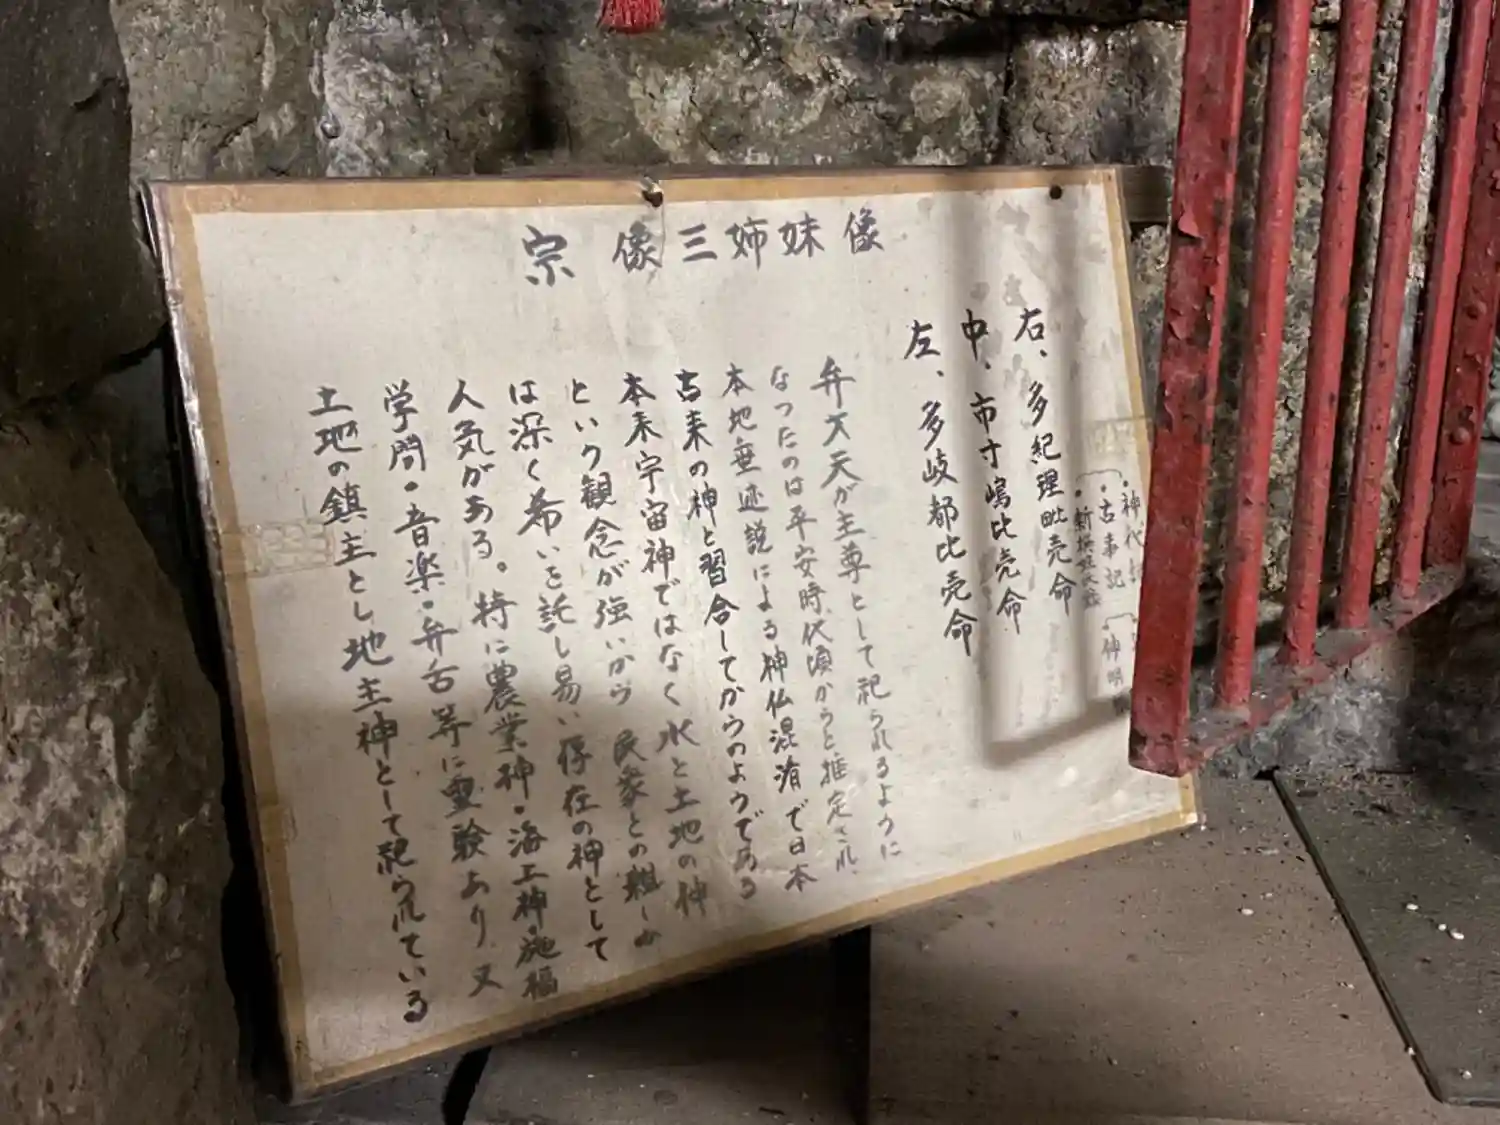 宗像三姉妹像
・神代
・古事記
・新撰
神明
右、多紀理毗売命
中、市寸嶋比売命
左、多岐都比売命
弁才天が主尊として祀られるように
なつたのは平安時代頃からと推定され、
本地垂迹説による神仏混淆で日本
古来の神と習合してからのようである
本来宇宙神ではなく水と土地の神
という観念が強いから民衆との繫
は深く希いを託し易い存在の神として
人気がある。特に農業神・海上神・施福
学問・音楽・弁舌等に霊験あり、又
土地の鎮主とし地主神として祀られている